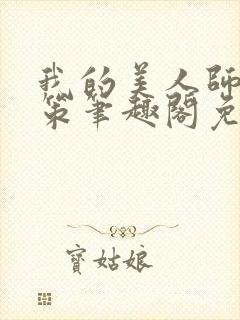 我的美人師
策筆趣閣免
寶姑娘